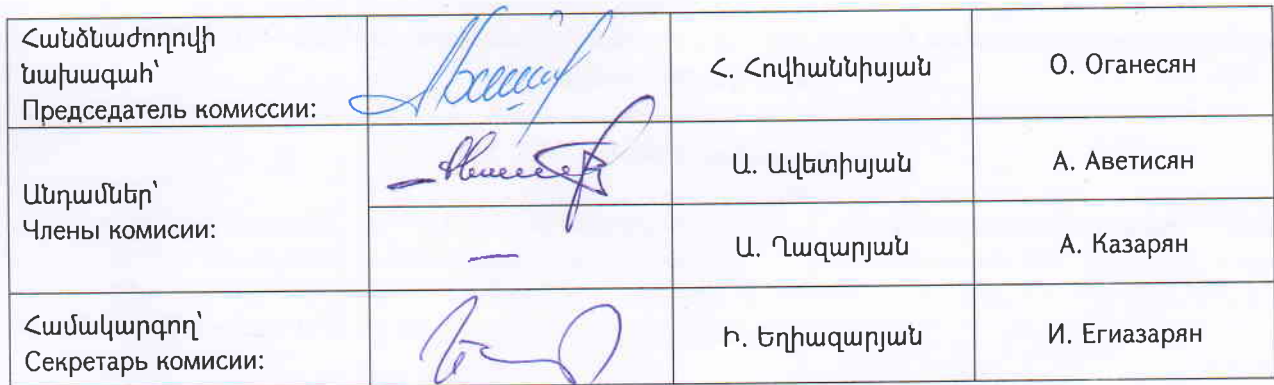 Հանձնաժողովի
նախագահ՝
Председатель комиссии:
Հ. Հովհաննիսյան
О. Оганесян
Անդամներ՝
Члены комисии:
Ա. Ավետիսյան
А. Аветисян
—
Ա. Ղազարյան
А. Казарян
Համակարգող՝
Секретарь комисии:
Ի. Եղիազարյան
И. Егиазарян